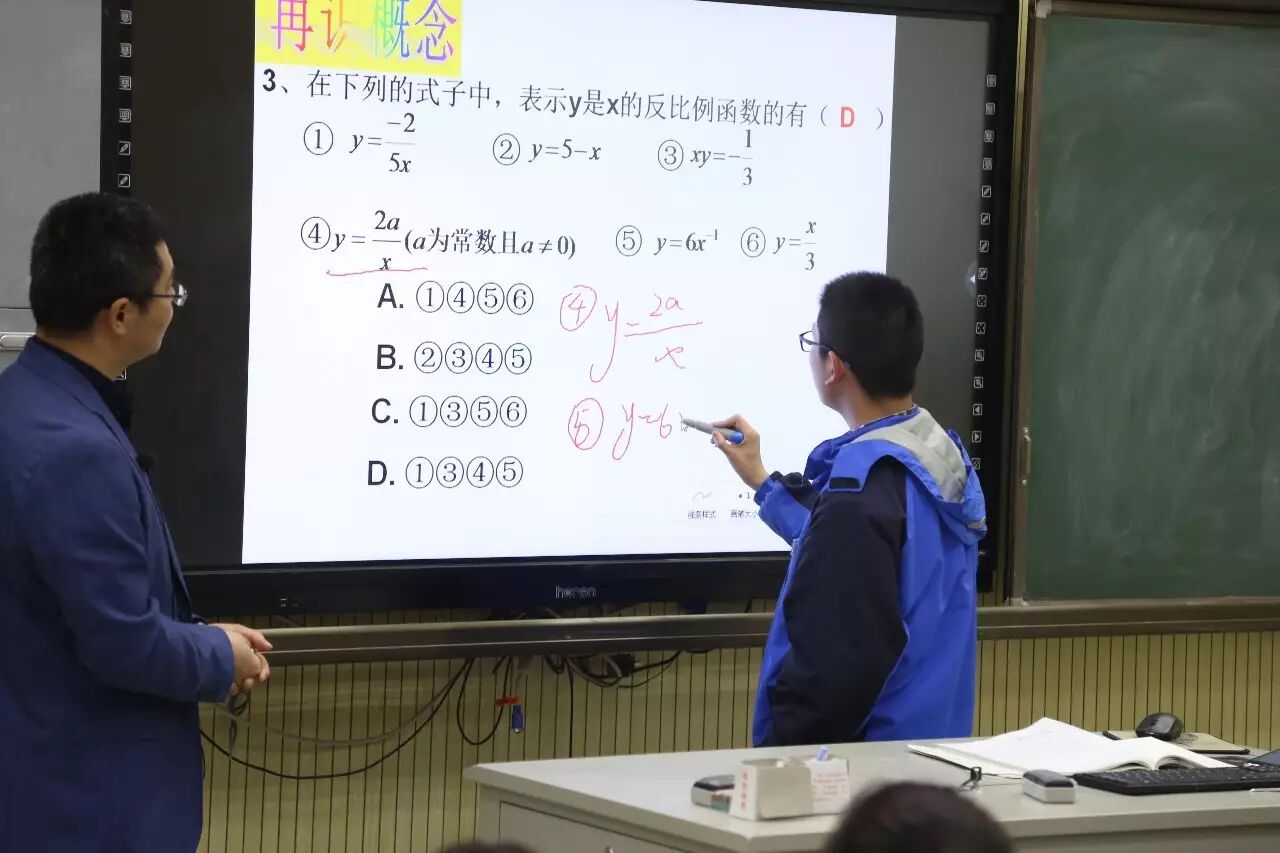 再识概念
3、在下列的式子中，表示y是x的反比例函数的有（ D ）
① y=-2/5x ② y=5-x ③ xy=-1/3
④ y=2a/x (a为常数且a≠0) ⑤ y=6x⁻¹ ⑥ y=x/3
A. ①④⑤⑥
B. ②③④⑤
C. ①③⑤⑥
D. ①③④⑤
④ y=2a/x
⑤ y=6
线条样式 画笔大小